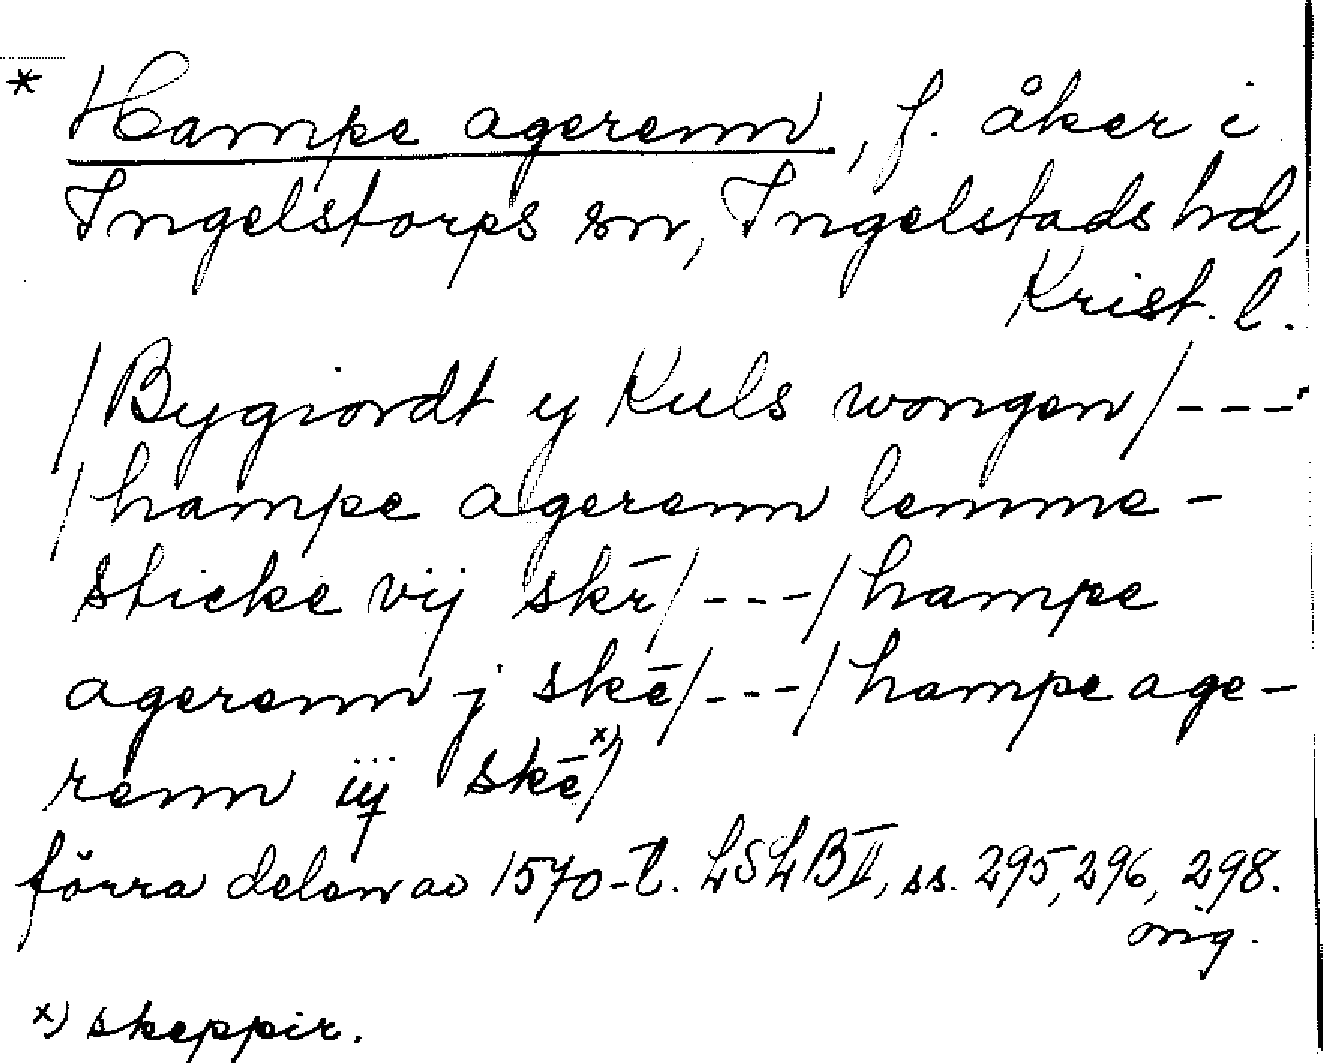 * Hampe agerenn, f. åker i
Ingelstorps sn, Ingelstads hd,
Krist. l.
/Bygiordt y Kuls wongen/---
/hampe agerenn lemme-
sticke vij skr̄/---/hampe
agerenn j skē/---/hampe age-
renn iij skē x)/
förra delen av 1570-t. LSLB II, ss. 295, 296, 298.
orig.
x) skeppir.